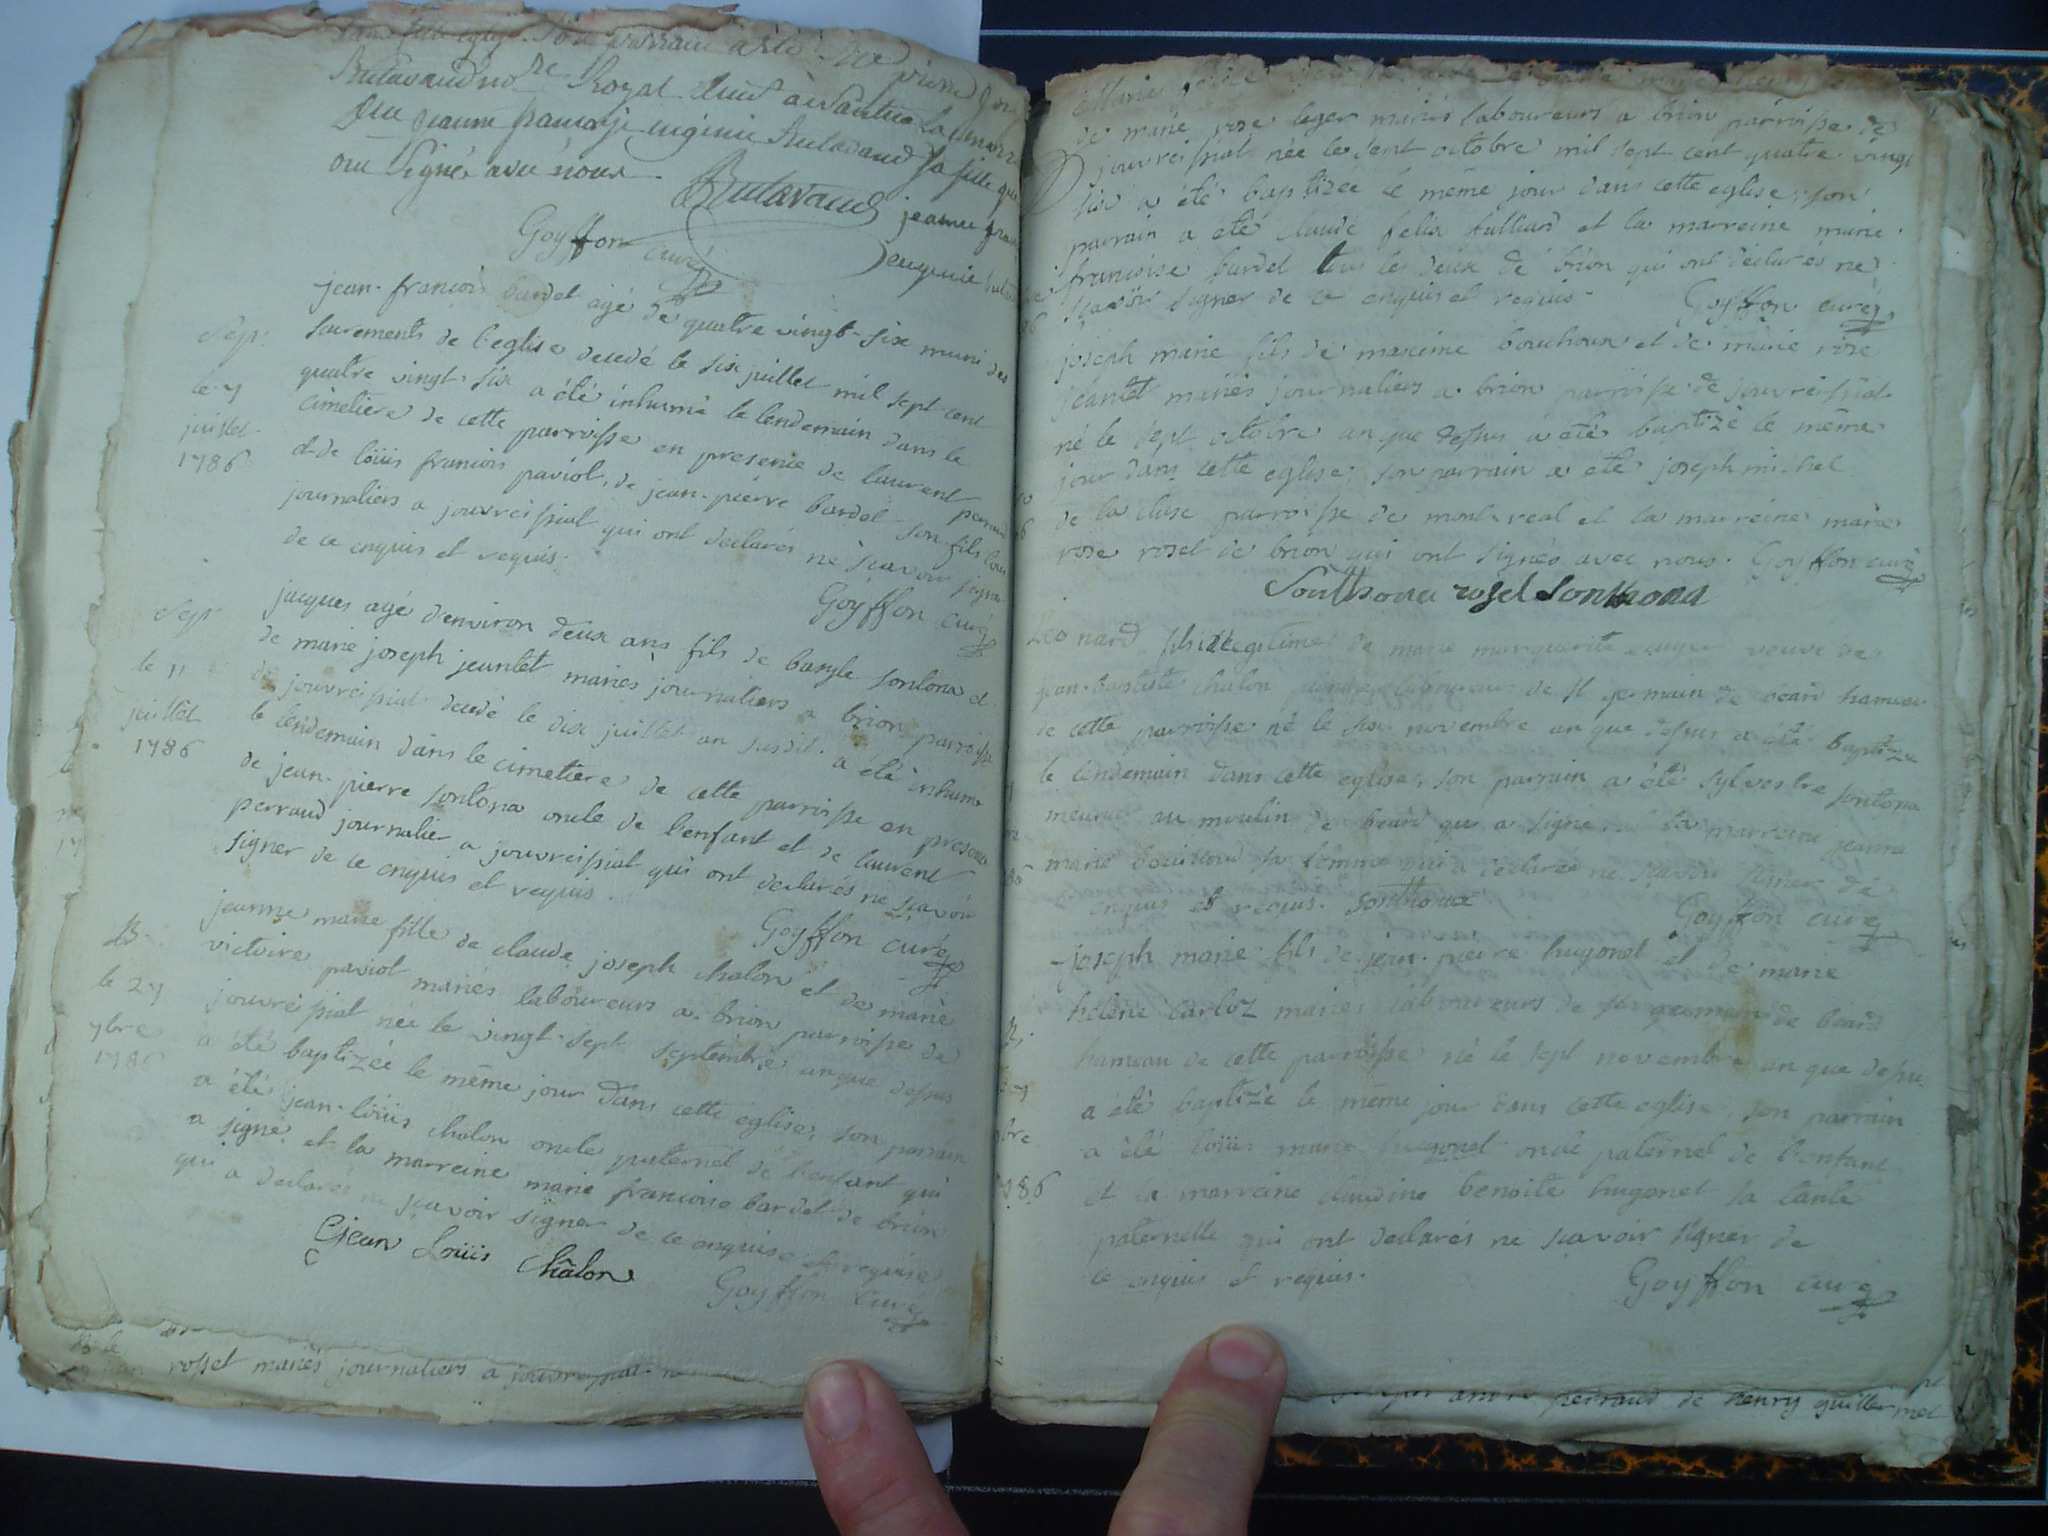 dans cette eglise. Son parrain a été
Butavand no.re Royal
Dlle jeanne françoise eugenie Butavand sa fille qui
ont Signés avec nous.
Butavand
jeanne
eugenie
Goyffon curé
jean-françois bardet agé de quatre vingt-six muni des
sacrements de l'eglise decedé le six juillet mil sept cent
quatre vingt-six a été inhumé le lendemain dans le
cimetière de cette parroisse en presence de laurent perraud
et de loüis francois paviot, de jean-pierre bardet son fils tous
journaliers a jouvreissiat qui ont declarés ne sçavoir signer
de ce enquis et requis.
Goyffon curé
Sep.
le 7
juillet
1786
jacques agé d'environ deux ans fils de basyle sontona et
de marie joseph jeantet mariés journaliers a brion parroisse
de jouvreissiat decedé le dix juillet an susdit. a été inhumé
le lendemain dans le cimetiere de cette parroisse en presence
de jean-pierre sontona oncle de l'enfant et de laurent
perraud journalier a jouvreissiat qui ont declarés ne sçavoir
signer de ce enquis et requis.
Goyffon curé
Sep.
le 11
juillet
1786
jeanne marie fille de claude joseph chalon et de marie
victoire paviot mariés laboureurs a brion parroisse de
jouvreissiat née le vingt-sept septembre an que dessus
a été baptizée le même jour dans cette eglise, son parrain
a été jean-loüis chalon oncle paternel de l'enfant qui
a signé et la marreine marie francoise bardet de brion
qui a declaré ne sçavoir signer de ce enquise et requise
jean Loüis Châlon
Goyffon curé
B.
le 27
7bre
1786
rosset mariés journaliers a jouvreissiat
de marie rose leger mariés laboureurs a brion parroisse de
jouvreissiat née le sept octobre mil sept cent quatre vingt
six a été baptizée le même jour dans cette eglise, son
parrain a été claude felix tulliard et la marreine marie
francoise bardet tous les deux de brion qui ont déclarés ne
sçavoir signer de ce enquis et requis.
Goyffon curé
joseph marie fils de maxime bouchoux et de marie rose
jeantet mariés journaliers a brion parroisse de jouvreissiat
né le sept octobre an que dessus a été baptizé le même
jour dans cette eglise, son parrain a été joseph michel
de la cluse parroisse de montreal et la marreine marie
rose roset de brion qui ont signés avec nous. Goyffon curé
Sonthona rosel Sonthona
Leonard fils illegitime de marie marguerite veuve de
jean-baptiste chalon laboureur de st germain de béard hameau
de cette parroisse né le six novembre an que dessus a été baptizé
le lendemain dans cette eglise, son parrain a été sylvestre sontona
meunier au moulin de béard qui a signé la marreine jeanne
marie sa femme qui a declarée ne sçavoir signer de
enquis et requis. Sonthona
Goyffon curé
joseph marie fils de jean-pierre hugonet et de marie
helène barloz mariés laboureurs de st germain de beard
hameau de cette parroisse né le sept novembre an que dessus
a été baptizé le même jour dans cette eglise, son parrain
a été loüis marie hugonet oncle paternel de l'enfant
et la marreine claudine benoite hugonet sa tante
paternelle qui ont declarés ne sçavoir signer de
ce enquis et requis.
Goyffon curé
perraud de henry guillermet